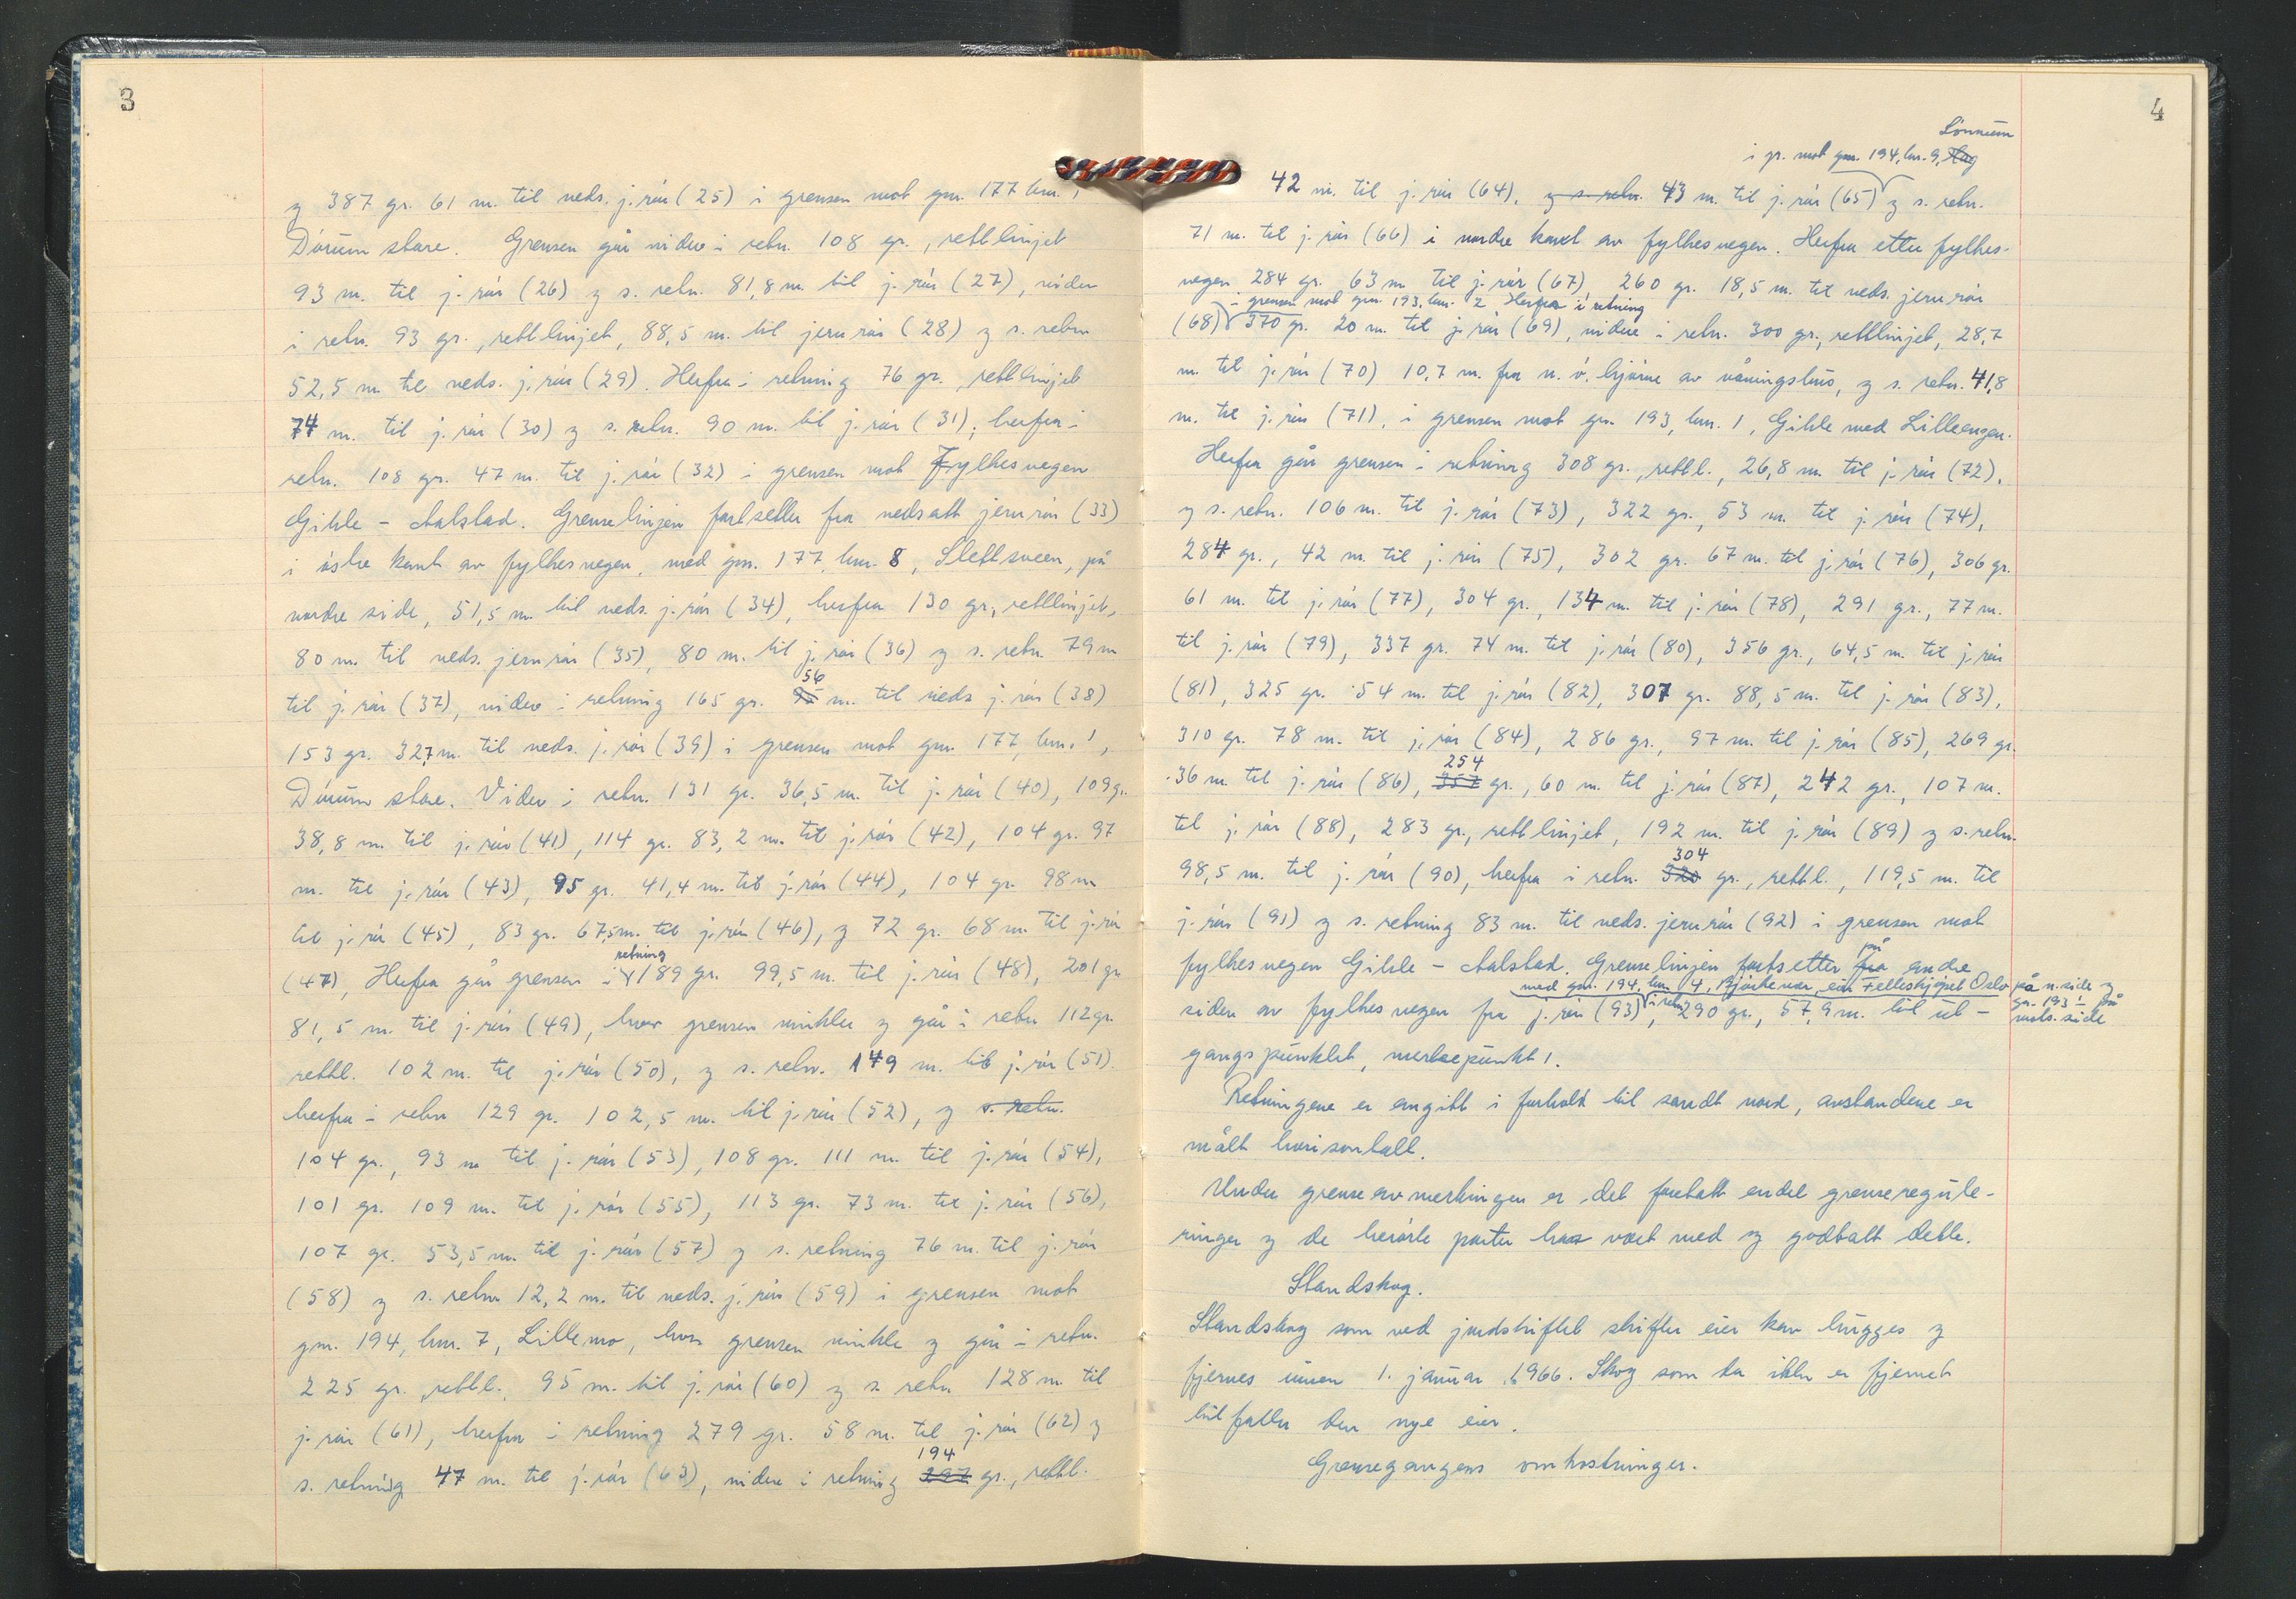 3
og 387 gr. 61 m. til neds. j.rör (25) i grensen mot gnr. 177 bnr. 1
Dörum store. Grensen går videre i retn. 108 gr., rettlinjet
93 m. til j. rör (26) og s. retn. 81,8 m. til j. rör (27), videre
i retn. 93 gr., rettlinjet, 88,5 m. til jernrör (28) og s. retn
52,5 m. til neds. j. rör (29). Herfra i retning 76 gr., rettlinjet
74 m. til j. rör (30) og s. retn. 90 m. til j. rör (31), herfra i
retn. 108 gr. 47 m. til j. rör (32) i grensen mot Fylkesvegen
Gihle - Aalstad. Grenselinjen fortsetter fra nedsatt jernrör (33)
i östre kant av fylkesvegen, med gnr. 177, bnr. 8, Slettsveen, på
nordre side, 51,5 m. til neds. j. rör (34), herfra 130 gr., rettlinjet,
80 m. til neds. jernrör (35), 80 m. til j. rör (36) og s. retn. 79 m
56
til j. rör (37), videre i retning 165 gr. 95 m. til neds j. rör (38)
153 gr. 32,7 m. til neds. j. rör (39) i grensen mot gnr. 177, bnr. 1,
Dörum store. Videre i retn. 131 gr. 36,5 m. til j. rör (40), 109 gr.
38,8 m. til j. rör (41), 114 gr. 83,2 m. til j. rör (42), 104 gr. 97
m. til j. rör (43), 95 gr. 41,4 m. til j. rör (44), 104 gr. 98 m
til j. rör (45), 83 gr. 67,5 m. til j. rör (46), og 72 gr. 68 m. til j. rör
retning
(47), Herfra går grensen i 189 gr. 99,5 m. til j. rör (48), 201 gr
81,5 m. til j. rör (49), hvor grensen vinkler og går i retn 112 gr.
rettl. 102 m. til j. rör (50), og s. retn. 149 m. til j. rör (51)
herfra i retn 129 gr. 102,5 m. til j. rör (52), og s. retn.
104 gr., 93 m til j. rör (53), 108 gr. 111 m. til j. rör (54),
101 gr. 109 m. til j. rör (55), 113 gr. 73 m. til j. rör (56),
107 gr. 53,5 m. til j. rör (57) og s. retning 76 m. til j. rör
(58) og s. retn 12,2 m. til neds. j. rör (59) i grensen mot
gnr. 194, bnr. 7, Lillemo, hvor grensen vinkle og går i retn.
225 gr., rettl., 95 m. til j. rör (60) og s. retn. 128 m. til
j. rör (61), herfra i retning 279 gr. 58 m. til j. rör (62) og
194
s. retning 47 m. til j. rör (63), videre i retning gr., rettl.
4
Lönnum
i gr. mot gnr. 194, bnr. 9, Haug
42 m. til j. rör (64), og s. retn. 43 m. til j. rör (65) og s. retn.
71 m. til j. rör (66) i nordre kant av fylkesvegen. Herfra etter fylkes-
vegen 284 gr. 63 m til j. rör (67), 260 gr. 18,5 m. til neds. jernrör
i grensen mot gnr. 193, bnr. 2 Herfra i retning
(68) 370 gr. 20 m. til j. rör (69), videre i retn. 300 gr., rettlinjet, 28,7
m. til j. rör (70) 10,7 m. fra n. ö. hjörne av våningshus, og s. retn. 41,8
m. til j. rör (71), i grensen mot gnr. 193, bnr. 1, Gihle med Lilleengen.
Herfra går grensen i retning 308 gr., rettl., 26,8 m. til j. rör (72),
og s. retn. 106 m. til j. rör (73), 322 gr., 53 m. til j. rör (74),
284 gr., 42 m. til j. rör (75), 302 gr. 67 m. til j. rör (76), 306 gr.
61 m. til j. rör (77), 304 gr., 134 m. til j. rör (78), 291 gr., 77 m.
til j. rör (79), 337 gr. 74 m. til j. rör (80), 356 gr., 64,5 m. til j. rör
(81), 325 gr. 54 m. til j. rör (82), 307 gr. 88,5 m. til j. rör (83),
310 gr. 78 m. til j. rör (84), 286 gr., 97 m. til j. rör (85), 269 gr.
254
36 m. til j. rör (86), 357 gr., 60 m. til j. rör (87), 242 gr., 107 m.
til j. rör (88), 283 gr., rettlinjet, 192 m. til j. rör (89) og s. retn.
304
98,5 m. til j. rör (90), herfra i retn. 320 gr., rettl., 119,5 m. til
j. rör (91) og s. retning 83 m. til neds. jernrör (92) i grensen mot
på
fylkesvegen Gihle - Aalstad. Grenselinjen fortsetter fra andre
med gnr. 194, bnr. 4, Bjørkevær, eier Felleskjøpet Oslo på n. side og
gnr. 193/1 på
siden av fylkesvegen fra j. rör (93), i retn. 290 gr., 57,9 m. til ut-
mots. side
gangspunktet, merkepunkt 1.
Retningene er angitt i forhold til sandt nord, avstandene er
målt horisontalt.
Under grenseavmerkingen er det foretatt endel grenseregule-
ringer og de berörte parter har vært med og godtatt dette.
Standskog.
Standskog som ved jordskiftet skifter eier kan hugges og
fjernes innen 1. januar 1966. Skog som da ikke er fjernet
tilfaller den nye eier.
Grensegangens omkostninger.